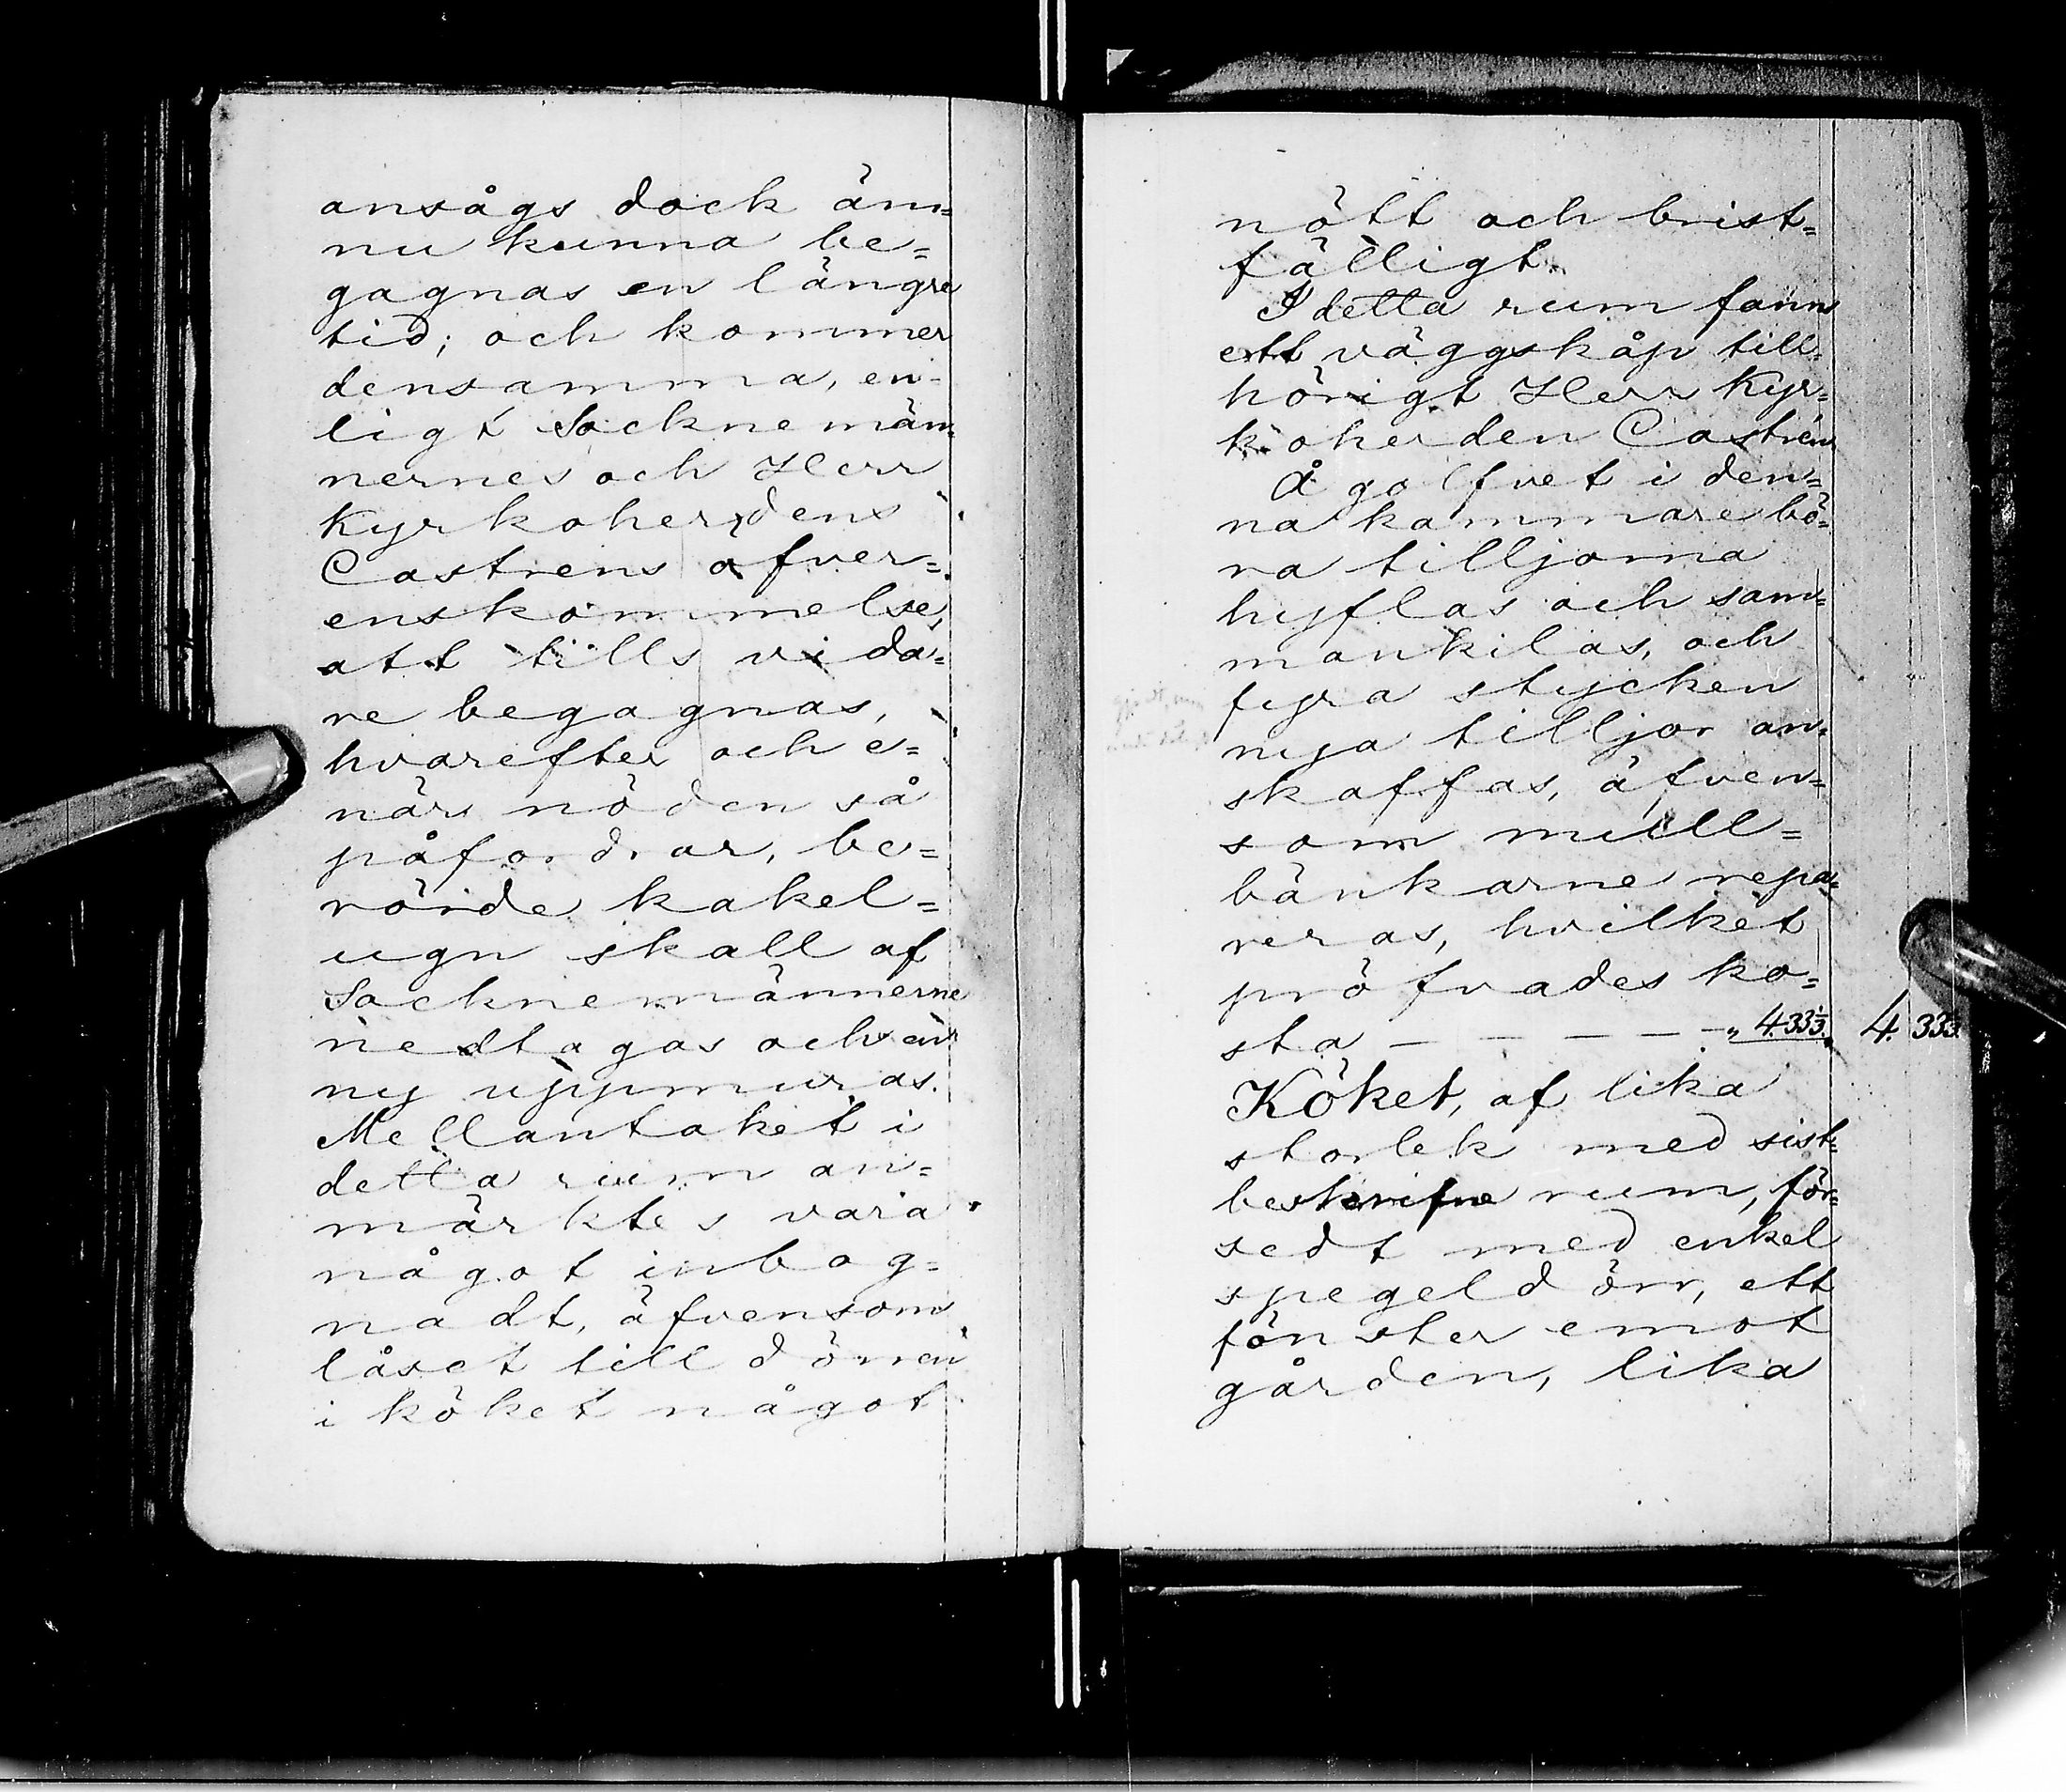 ansågs dock än=
nu kunna be=
gagnas en längre
tid; och kommer
densamma, en=
ligt Socknemän=
nernes och Herr
Kyrkoherdens
Castrens öfver=
enskommelse,
att tills vida=
re begagnas,
hvarefter och e=
när nöden så
påfordrar, be=
rörde kakel=
ugn skall af
Socknemännerne
nedtagas och en
ny uppmuras.
Mellantaket i
detta rum an=
märktes vara
något inbog=
nadt, äfvensom
låset till dörren
i köket något
nött och brist=
fälligt.
I detta rum fanns
ett väggskåp till=
hörigt Herr Kyr=
koherden Castrén
Å golfvet i den=
na kammare bö=
ra tilljorna
hyflas och sam=
mankilas, och
fyra stycken
nya tilljor an=
skaffas, äfven=
som mull=
bänkarne repa=
reras, hvilket
pröfvades ko=
sta — — — — — „ 4.33⅓. 4. 33⅓.
Köket, af lika
storlek med sist=
beskrifne rum, för=
sedt med enkel
spegeldörr, ett
fönster emot
gården, lika